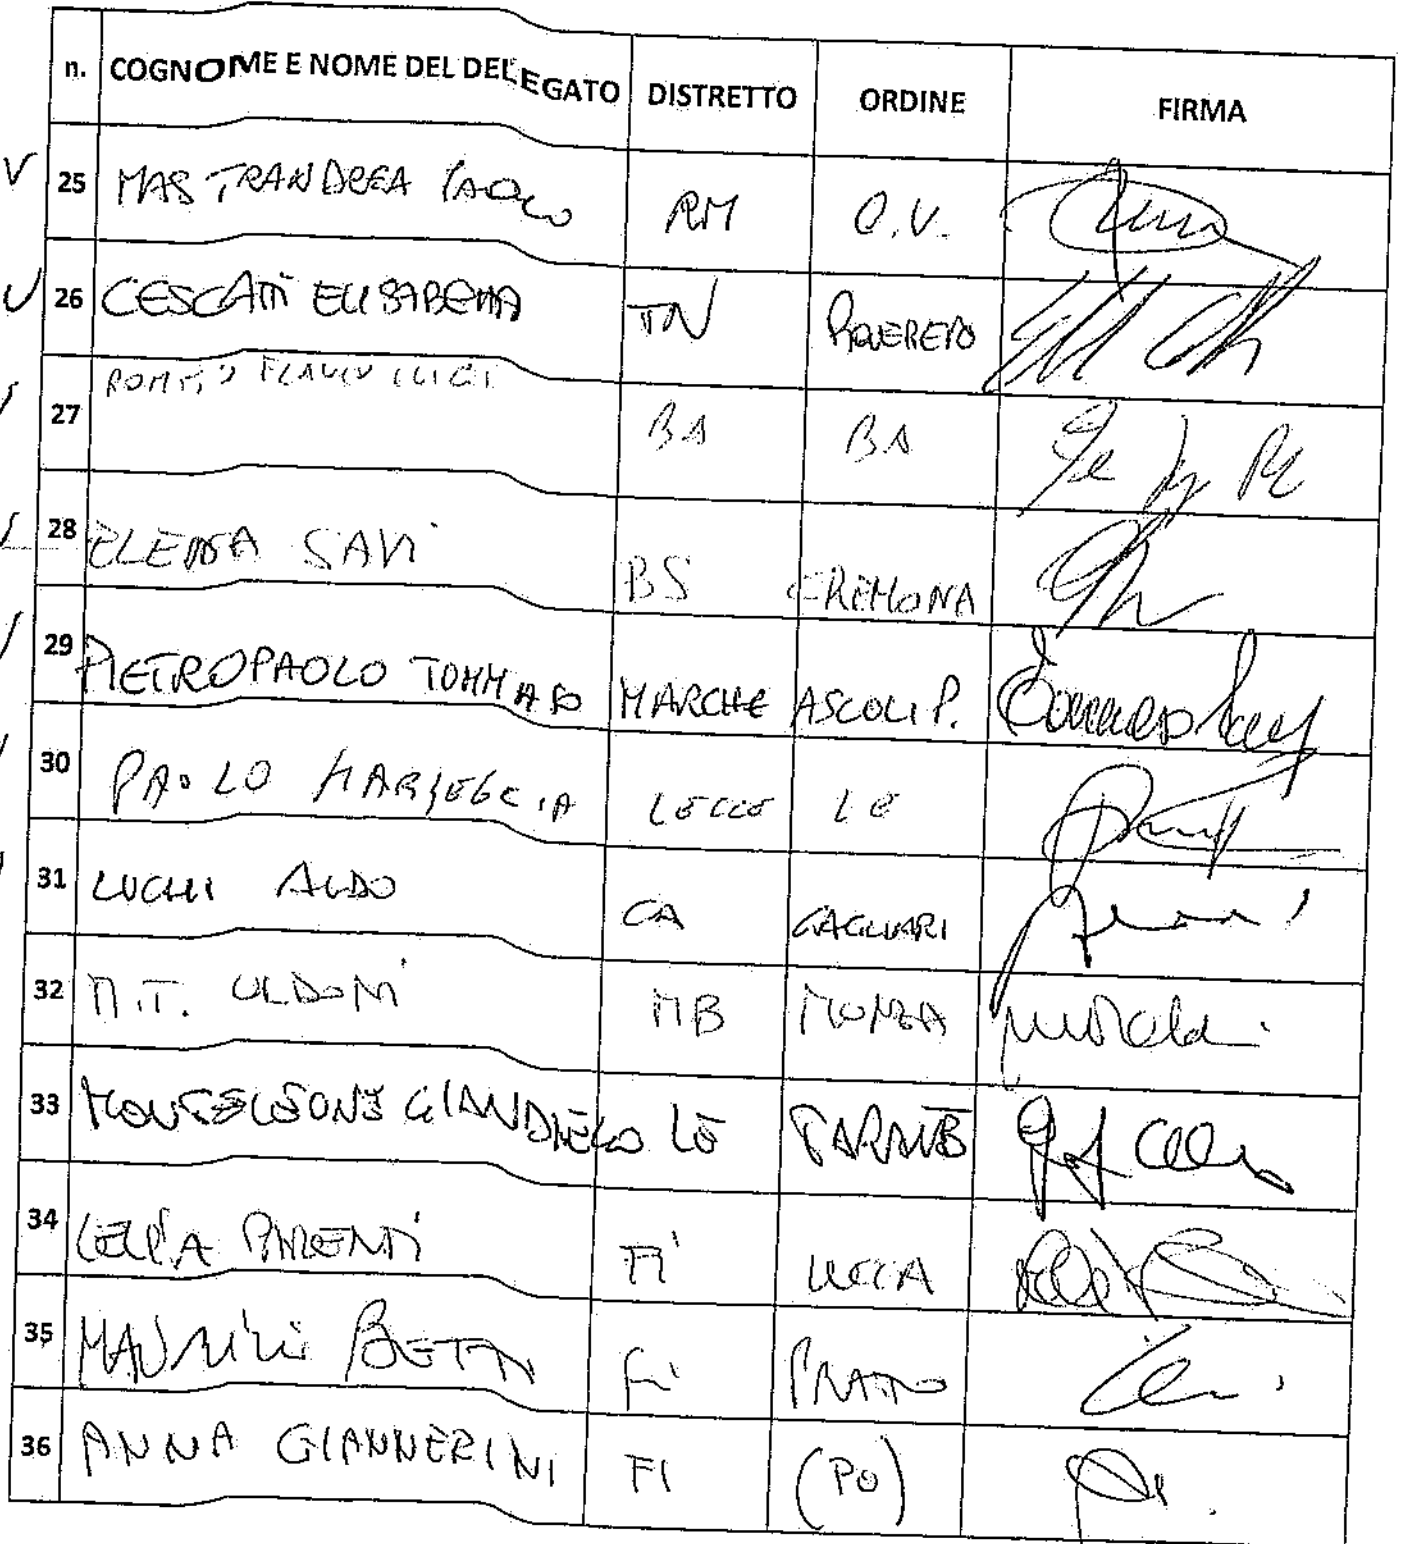 n. COGNOME E NOME DEL DELEGATO DISTRETTO ORDINE FIRMA
V 25 MASTRANDREA PAOLO RM C.V.
V 26 CESCATTI ELISABETTA TN ROVERETO
27 FLAVIO BA BA
28 ELENA SAVI BS CREMONA
29 PIETROPAOLO TOMMASO MARCHE ASCOLI P.
30 PAOLO MARSEGLIA LECCE LE
31 LUCHI ALDO CA CAGLIARI
32 M.T. ULDONI MB MONZA
33 MONTELEONE GIANDIEGO LE
34 LELIA PARENTI FI LUCCA
35 MAURIZIO BETTI FI PRATO
36 ANNA GIANNERINI FI (PO)